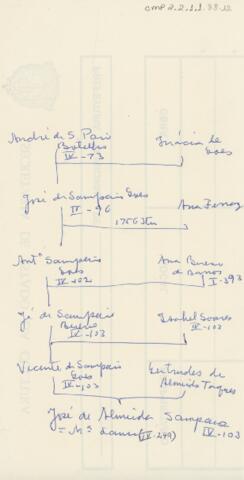 CMP 2.2.1.1.33.12
André de S. Paio
Botelho
IV-73
Inácia de
Goes
José de Sampaio Goes
IV-96
Ana Ferraz
1756 Itu
Antº Sampaio
Goes
IV-102
Ana Bueno
de Barros
I-393
Jé de Sampaio
Bueno
IV-103
Isabel Soares
IV-103
Vicente de Sampaio
Goes
IV-103
Gertrudes de
Almeida Taques
José de Almeida Sampaio
IV-103
= Mª
(IV-249)